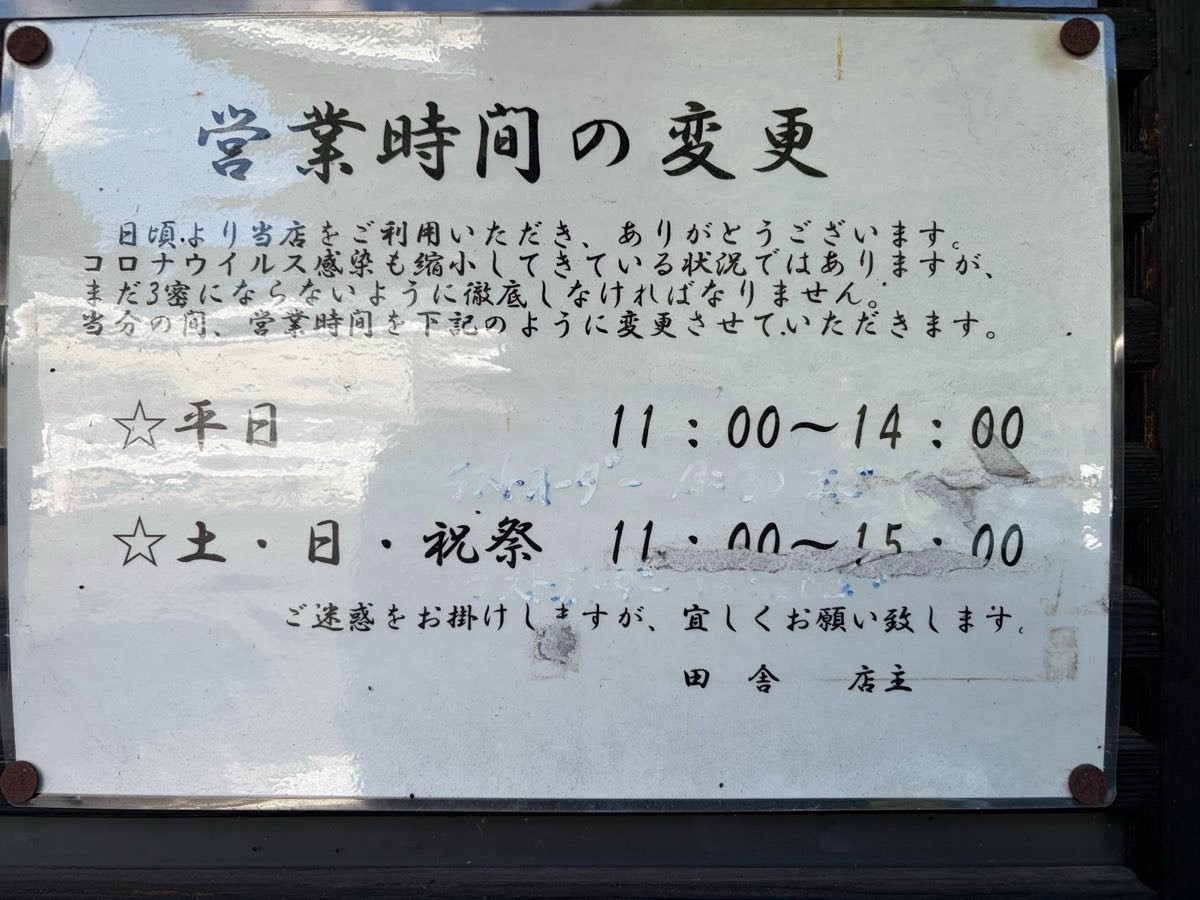 営業時間の変更
日頃より当店をご利用いただき、ありがとうございます。
コロナウイルス感染も縮小してきている状況ではありますが、
まだ3密にならないように徹底しなければなりません。
当分の間、営業時間を下記のように変更させていただきます。
☆平日 11：00～14：00
☆土・日・祝祭 11：00～15：00
ご迷惑をお掛けしますが、宜しくお願い致します。
田舎 店主